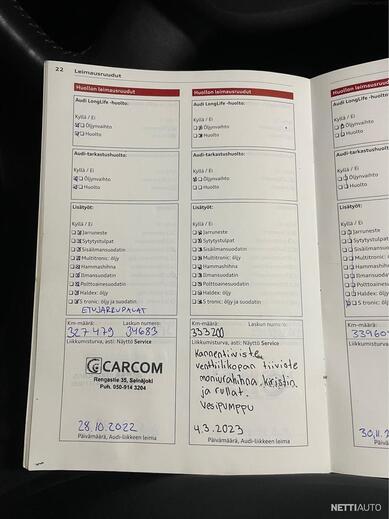 22 Leimausruudut
Huollon leimausruudut
Audi LongLife -huolto:
Kyllä / Ei
Öljynvaihto
Huolto
Audi-tarkastushuolto:
Kyllä / Ei
Öljynvaihto
Huolto
Lisätyöt:
Kyllä / Ei
Jarruneste
Sytytystulpat
Sisäilmansuodatin
Multitronic: öljy
Hammashihna
Ilmansuodatin
Polttoainesuodatin
Haldex: öljy
S tronic: öljy ja suodatin
ETUJARRUPALAT
Km-määrä: Laskun numero:
327479 34683
Liikkumisturva, asti: Näyttö Service
CARCOM
Rengastie 35, Seinäjoki
Puh. 050-914 3204
28.10.2022
Päivämäärä, Audi-liikkeen leima
Huollon leimausruudut
Audi LongLife -huolto:
Kyllä / Ei
Öljynvaihto
Huolto
Audi-tarkastushuolto:
Kyllä / Ei
Öljynvaihto
Huolto
Lisätyöt:
Kyllä / Ei
Jarruneste
Sytytystulpat
Sisäilmansuodatin
Multitronic: öljy
Hammashihna
Ilmansuodatin
Polttoainesuodatin
Haldex: öljy
S tronic: öljy ja suodatin
Km-määrä: Laskun numero:
333200
Liikkumisturva, asti: Näyttö Service
Kannentiiviste
venttiilikopan tiiviste
moniurahihna, kiristin
ja rullat.
Vesipumppu
4.3.2023
Päivämäärä, Audi-liikkeen leima
Huollon
Audi LongLife
Kyllä / Ei
Öljynvaihto
Huolto
Audi-tarkastus
Kyllä / Ei
Öljynvaihto
Huolto
Lisätyöt:
Kyllä / Ei
Km-määrä:
33960
Liikkumistur
30.11.2
Päivämää
NETTIAUTO